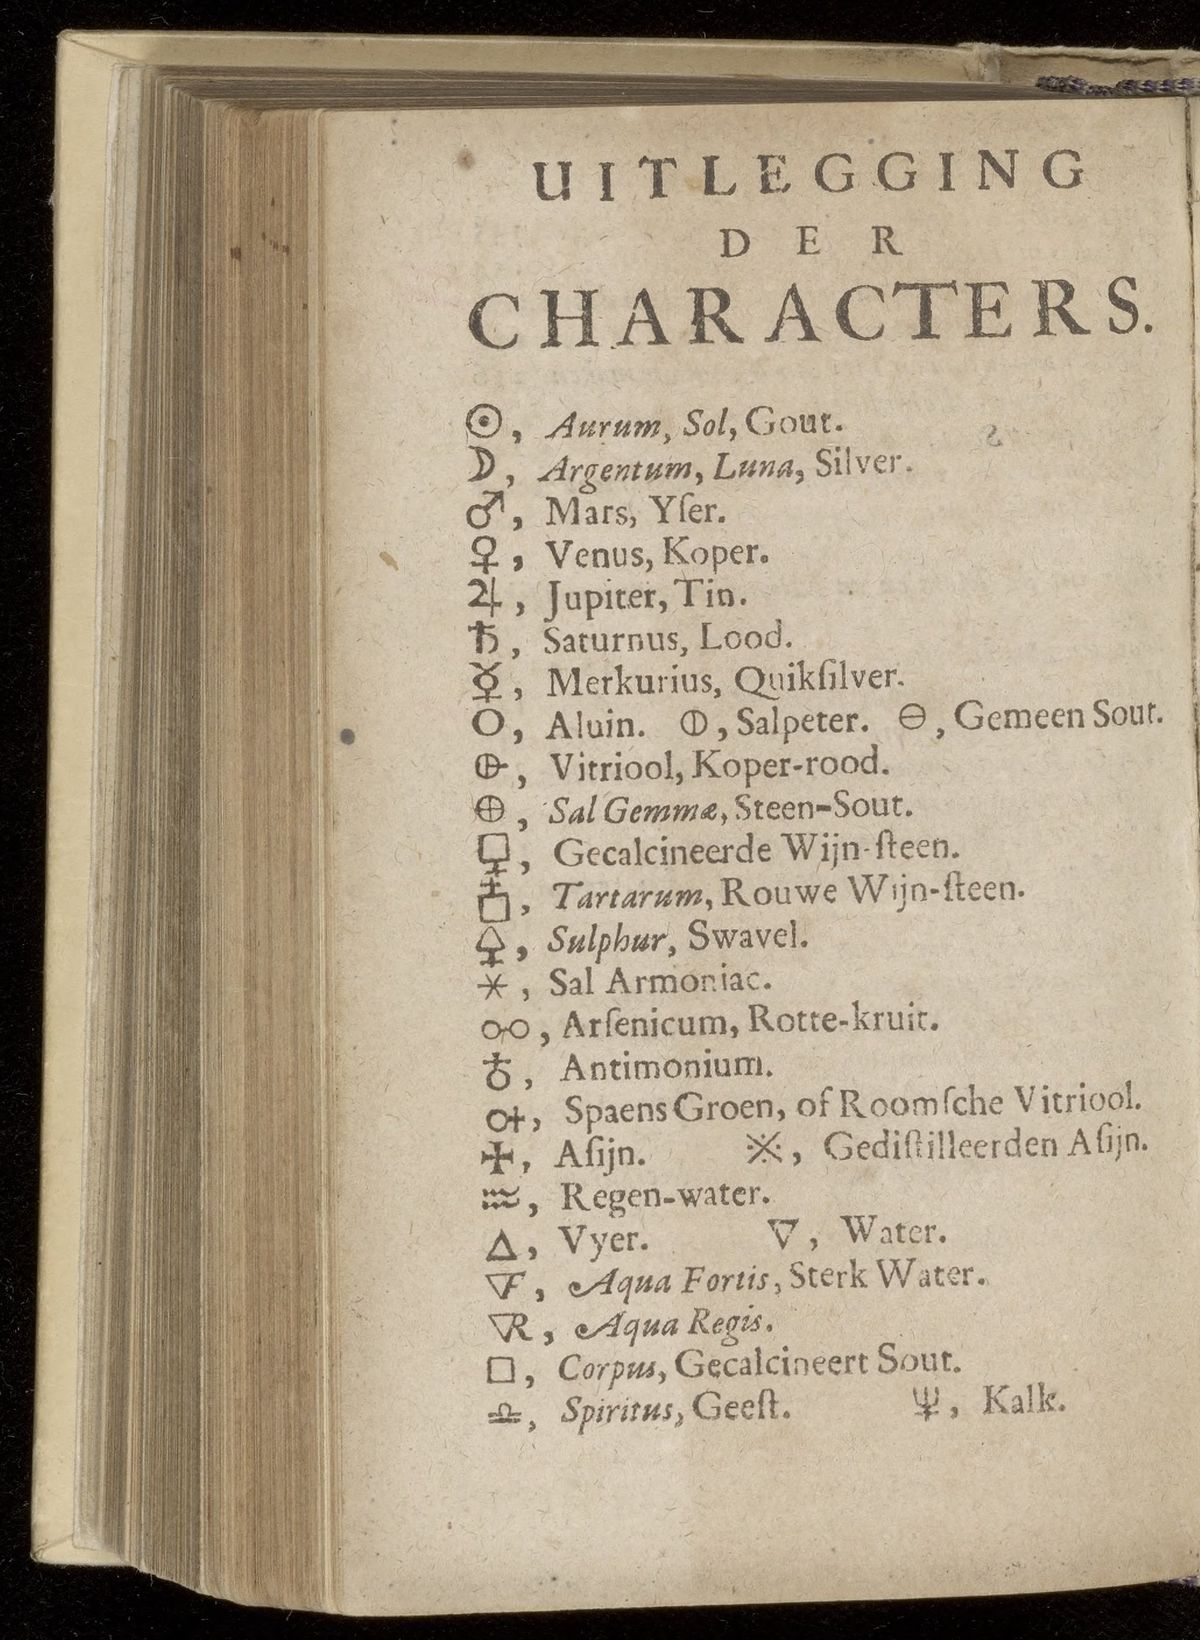 UITLEGGING
DER
CHARACTERS.
☉, Aurum, Sol, Gout.
☽, Argentum, Luna, Silver.
♂, Mars, Yſer.
♀, Venus, Koper.
♃, Jupiter, Tin.
♄, Saturnus, Lood.
☿, Merkurius, Quikſilver.
O, Aluin. ⦶, Salpeter. ⊖, Gemeen Sout.
🜖, Vitriool, Koper-rood.
⊕, Sal Gemmæ, Steen-Sout.
, Gecalcineerde Wijn-ſteen.
, Tartarum, Rouwe Wijn-ſteen.
🜍, Sulphur, Swavel.
⚹, Sal Armoniac.
, Arſenicum, Rotte-kruit.
♁, Antimonium.
, Spaens Groen, of Roomſche Vitriool.
✠, Aſijn. ※, Gediſtilleerden Aſijn.
, Regen-water.
△, Vyer. ▽, Water.
▽F, Aqua Fortis, Sterk Water.
▽R, Aqua Regis.
□, Corpus, Gecalcineert Sout.
♎, Spiritus, Geeſt. ♆, Kalk.